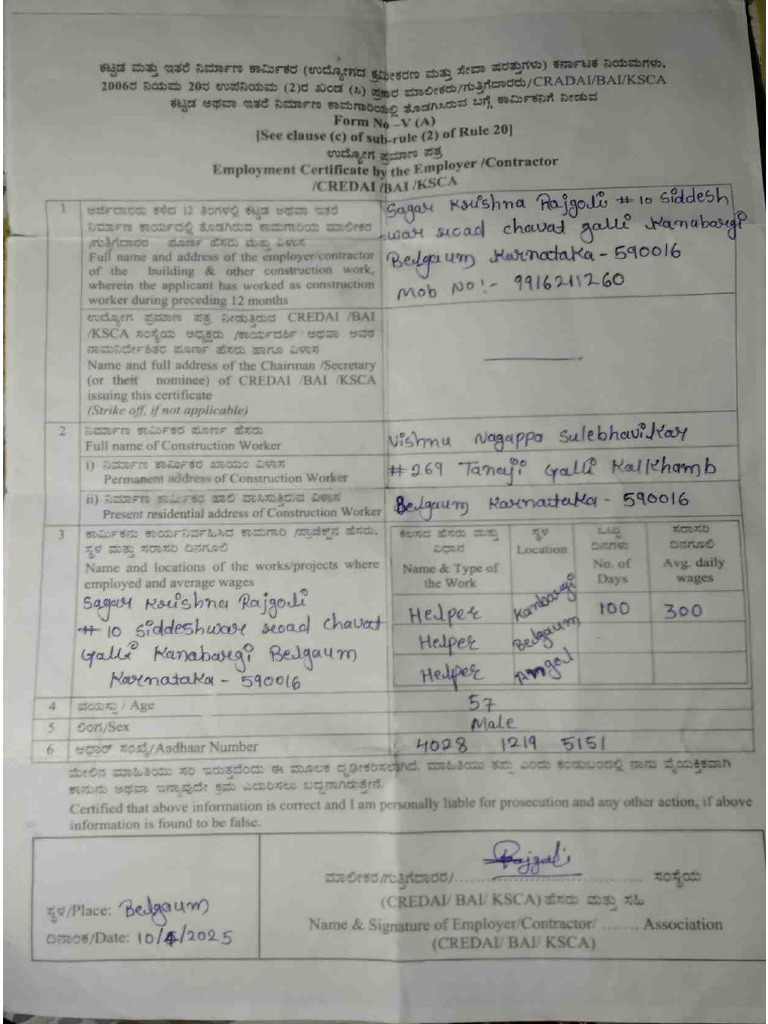 ಕಟ್ಟಡ ಮತ್ತು ಇತರೆ ನಿರ್ಮಾಣ ಕಾರ್ಮಿಕರ (ಉದ್ಯೋಗದ ಕ್ರಮೀಕರಣ ಮತ್ತು ಸೇವಾ ಷರತ್ತುಗಳು) ಕರ್ನಾಟಕ ನಿಯಮಗಳು,
2006ರ ನಿಯಮ 20ರ ಉಪನಿಯಮ (2)ರ ಖಂಡ (ಸಿ) ಪ್ರಕಾರ ಮಾಲೀಕರು/ಗುತ್ತಿಗೆದಾರರು/CRADAI/BAI/KSCA
ಕಟ್ಟಡ ಅಥವಾ ಇತರೆ ನಿರ್ಮಾಣ ಕಾಮಗಾರಿಯಲ್ಲಿ ತೊಡಗಿಸಿರುವ ಬಗ್ಗೆ ಕಾರ್ಮಿಕನಿಗೆ ನೀಡುವ
Form No –V (A)
[See clause (c) of sub-rule (2) of Rule 20]
ಉದ್ಯೋಗ ಪ್ರಮಾಣ ಪತ್ರ
Employment Certificate by the Employer /Contractor
/CREDAI /BAI /KSCA
1 ಅರ್ಜಿದಾರರು ಕಳೆದ 12 ತಿಂಗಳಲ್ಲಿ ಕಟ್ಟಡ ಅಥವಾ ಇತರೆ
ನಿರ್ಮಾಣ ಕಾರ್ಯದಲ್ಲಿ ತೊಡಗಿಸಿರುವ ಕಾಮಗಾರಿಯ ಮಾಲೀಕರ
/ಗುತ್ತಿಗೆದಾರರ ಪೂರ್ಣ ಹೆಸರು ಮತ್ತು ವಿಳಾಸ
Full name and address of the employer/contractor
of the building & other construction work,
wherein the applicant has worked as construction
worker during preceding 12 months
Sagar Krishna Rajgoli # 10 Siddesh
war road chavat galli Kanabargi
Belgaum Karnataka - 590016
Mob No:- 9916211260
ಉದ್ಯೋಗ ಪ್ರಮಾಣ ಪತ್ರ ನೀಡುತ್ತಿರುವ CREDAI /BAI
/KSCA ಸಂಸ್ಥೆಯ ಅಧ್ಯಕ್ಷರು /ಕಾರ್ಯದರ್ಶಿ ಅಥವಾ ಅವರ
ನಾಮನಿರ್ದೇಶಿತರ ಪೂರ್ಣ ಹೆಸರು ಹಾಗೂ ವಿಳಾಸ
Name and full address of the Chairman /Secretary
(or their nominee) of CREDAI /BAI /KSCA
issuing this certificate
(Strike off, if not applicable)
2 ನಿರ್ಮಾಣ ಕಾರ್ಮಿಕರ ಪೂರ್ಣ ಹೆಸರು
Full name of Construction Worker
Vishnu Nagappa Sulebhavikar
i) ನಿರ್ಮಾಣ ಕಾರ್ಮಿಕರ ಖಾಯಂ ವಿಳಾಸ
Permanent address of Construction Worker
# 269 Tanaji Galli Kalkhamb
ii) ನಿರ್ಮಾಣ ಕಾರ್ಮಿಕರ ಹಾಲಿ ವಾಸಿಸುತ್ತಿರುವ ವಿಳಾಸ
Present residential address of Construction Worker
Belgaum Karnataka - 590016
3 ಕಾರ್ಮಿಕನು ಕಾರ್ಯನಿರ್ವಹಿಸಿದ ಕಾಮಗಾರಿ /ಪ್ರಾಜೆಕ್ಟ್‌ನ ಹೆಸರು,
ಸ್ಥಳ ಮತ್ತು ಸರಾಸರಿ ದಿನಗೂಲಿ
Name and locations of the works/projects where
employed and average wages
Sagar Krishna Rajgoli
# 10 Siddeshwar road chavat
Galli Kanabargi Belgaum
Karnataka - 590016
ಕೆಲಸದ ಹೆಸರು ಮತ್ತು ವಿಧಾನ
Name & Type of the Work
ಸ್ಥಳ
Location
ಒಟ್ಟು ದಿನಗಳು
No. of Days
ಸರಾಸರಿ ದಿನಗೂಲಿ
Avg. daily wages
Helper Kanbargi 100 300
Helper Belgaum
Helper Angol
4 ವಯಸ್ಸು / Age 57
5 ಲಿಂಗ/Sex Male
6 ಆಧಾರ್ ಸಂಖ್ಯೆ/Aadhaar Number 4028 1219 5151
ಮೇಲಿನ ಮಾಹಿತಿಯು ಸರಿ ಇರುತ್ತದೆಂದು ಈ ಮೂಲಕ ದೃಢೀಕರಿಸಲಾಗಿದೆ. ಮಾಹಿತಿಯು ತಪ್ಪು ಎಂದು ಕಂಡುಬಂದಲ್ಲಿ ನಾನು ವೈಯಕ್ತಿಕವಾಗಿ
ಕಾನೂನು ಅಥವಾ ಇನ್ನಾವುದೇ ಕ್ರಮ ಎದುರಿಸಲು ಬದ್ಧನಾಗಿರುತ್ತೇನೆ.
Certified that above information is correct and I am personally liable for prosecution and any other action, if above
information is found to be false.
Rajgoli
ಮಾಲೀಕರ/ಗುತ್ತಿಗೆದಾರರ/........................ ಸಂಸ್ಥೆಯ
(CREDAI/ BAI/ KSCA) ಹೆಸರು ಮತ್ತು ಸಹಿ
Name & Signature of Employer/Contractor/ ........ Association
(CREDAI/ BAI/ KSCA)
ಸ್ಥಳ/Place: Belgaum
ದಿನಾಂಕ/Date: 10/4/2025